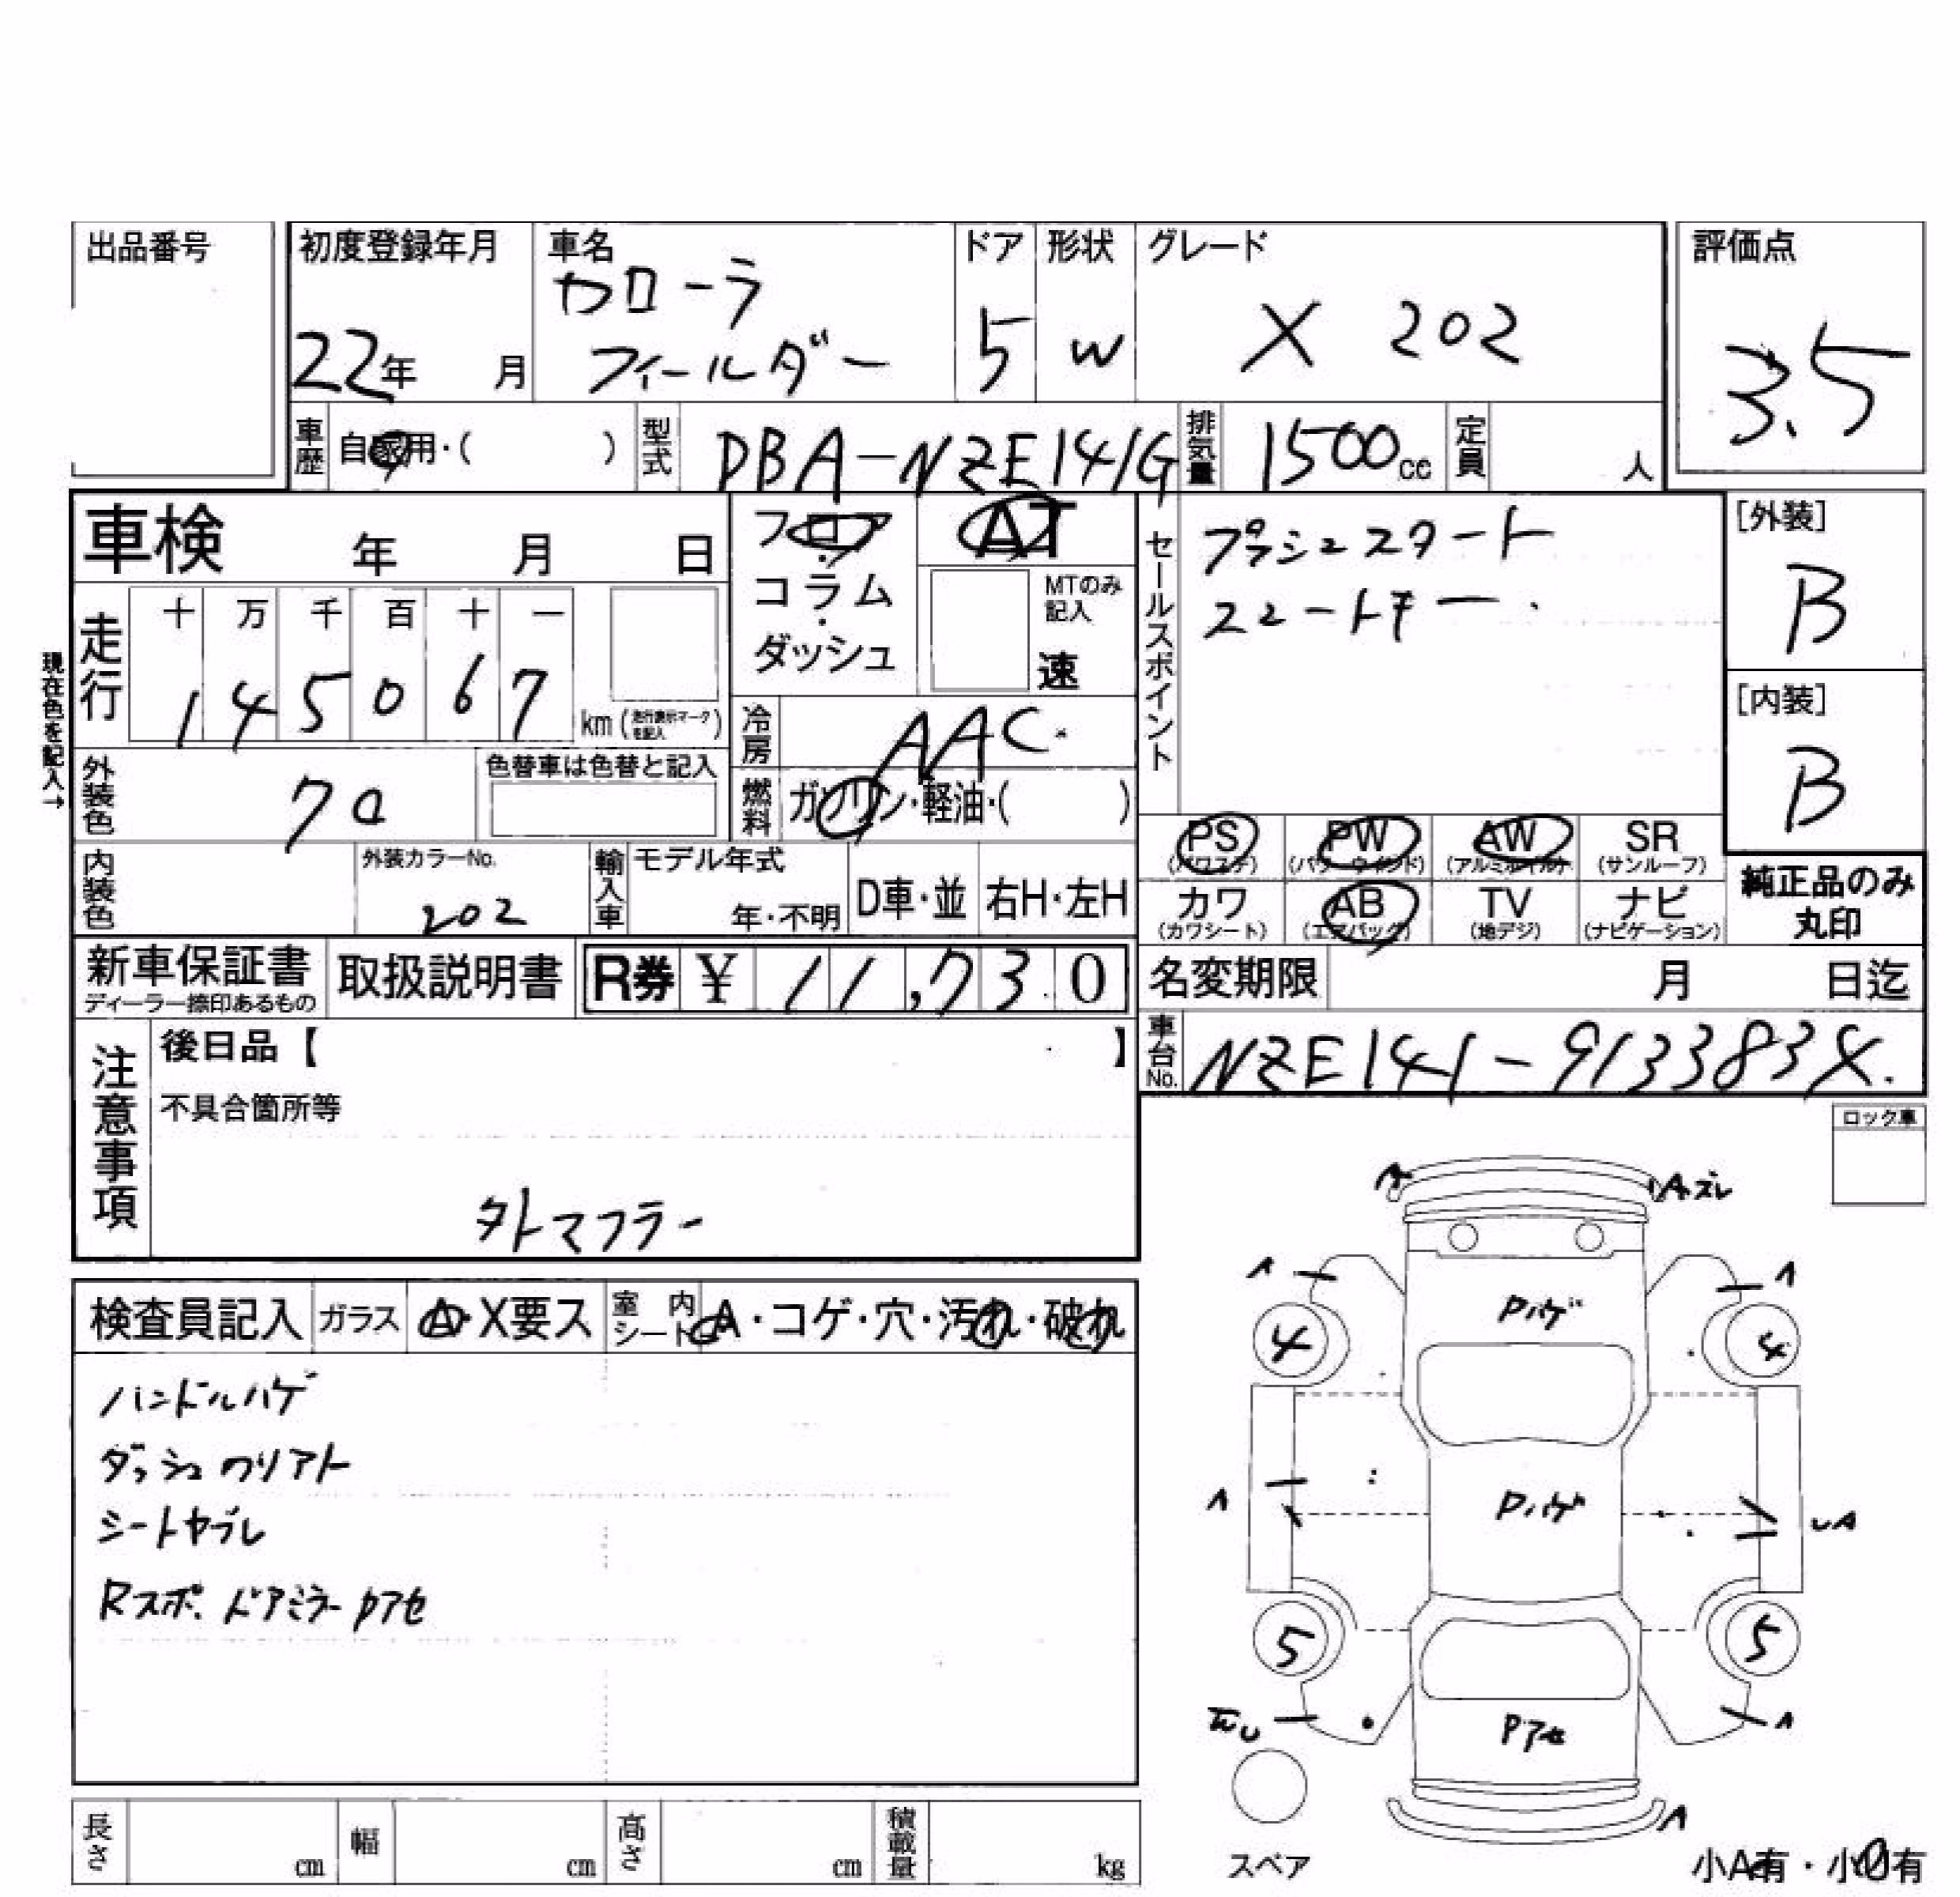 出品番号
初度登録年月 車名 ドア 形状 グレード 評価点
カローラ
22年 月 フィールダー 5 W X 202 3.5
車歴 自家用・( ) 型式 DBA-NZE141G 排気量 1500cc 定員 人
車検 年 月 日 フロア AT セールスポイント プッシュスタート [外装]
コラム MTのみ記入 スマートキー. B
ダッシュ 速
現在色を記入→
走行 十 万 千 百 十 一
1 4 5 0 6 7 km(走行表示マークを記入) 冷房 AAC. [内装]
外装色 クロ 色替車は色替と記入 燃料 ガソリン・軽油・( ) B
PS PW AW SR
(パワステ) (パワーウィンド) (アルミホイル) (サンルーフ)
内装色 外装カラーNo. 輸入車 モデル年式
202 年・不明 D車・並 右H・左H
カワ AB TV ナビ 純正品のみ
(カワシート) (エアバッグ) (地デジ) (ナビゲーション) 丸印
新車保証書 取扱説明書 R券 ¥ 11,730 名変期限 月 日迄
ディーラー捺印あるもの
注意事項 後日品【 】 車台No. NZE141-913383X.
不具合箇所等 ロック車
外トマフラー
A Aズレ
A A
Pハゲ
4 4
検査員記入 ガラス A・X要ス 室内シート A・コゲ・穴・汚れ・破れ
ハンドルハゲ
ダッシュノリアト
シートヤブレ
Rスポ. ドアミラーPアセ
A Pハゲ UA
5 5
Pアセ A
A
スペア
長さ cm 幅 cm 高さ cm 積載量 kg
小A有・小U有